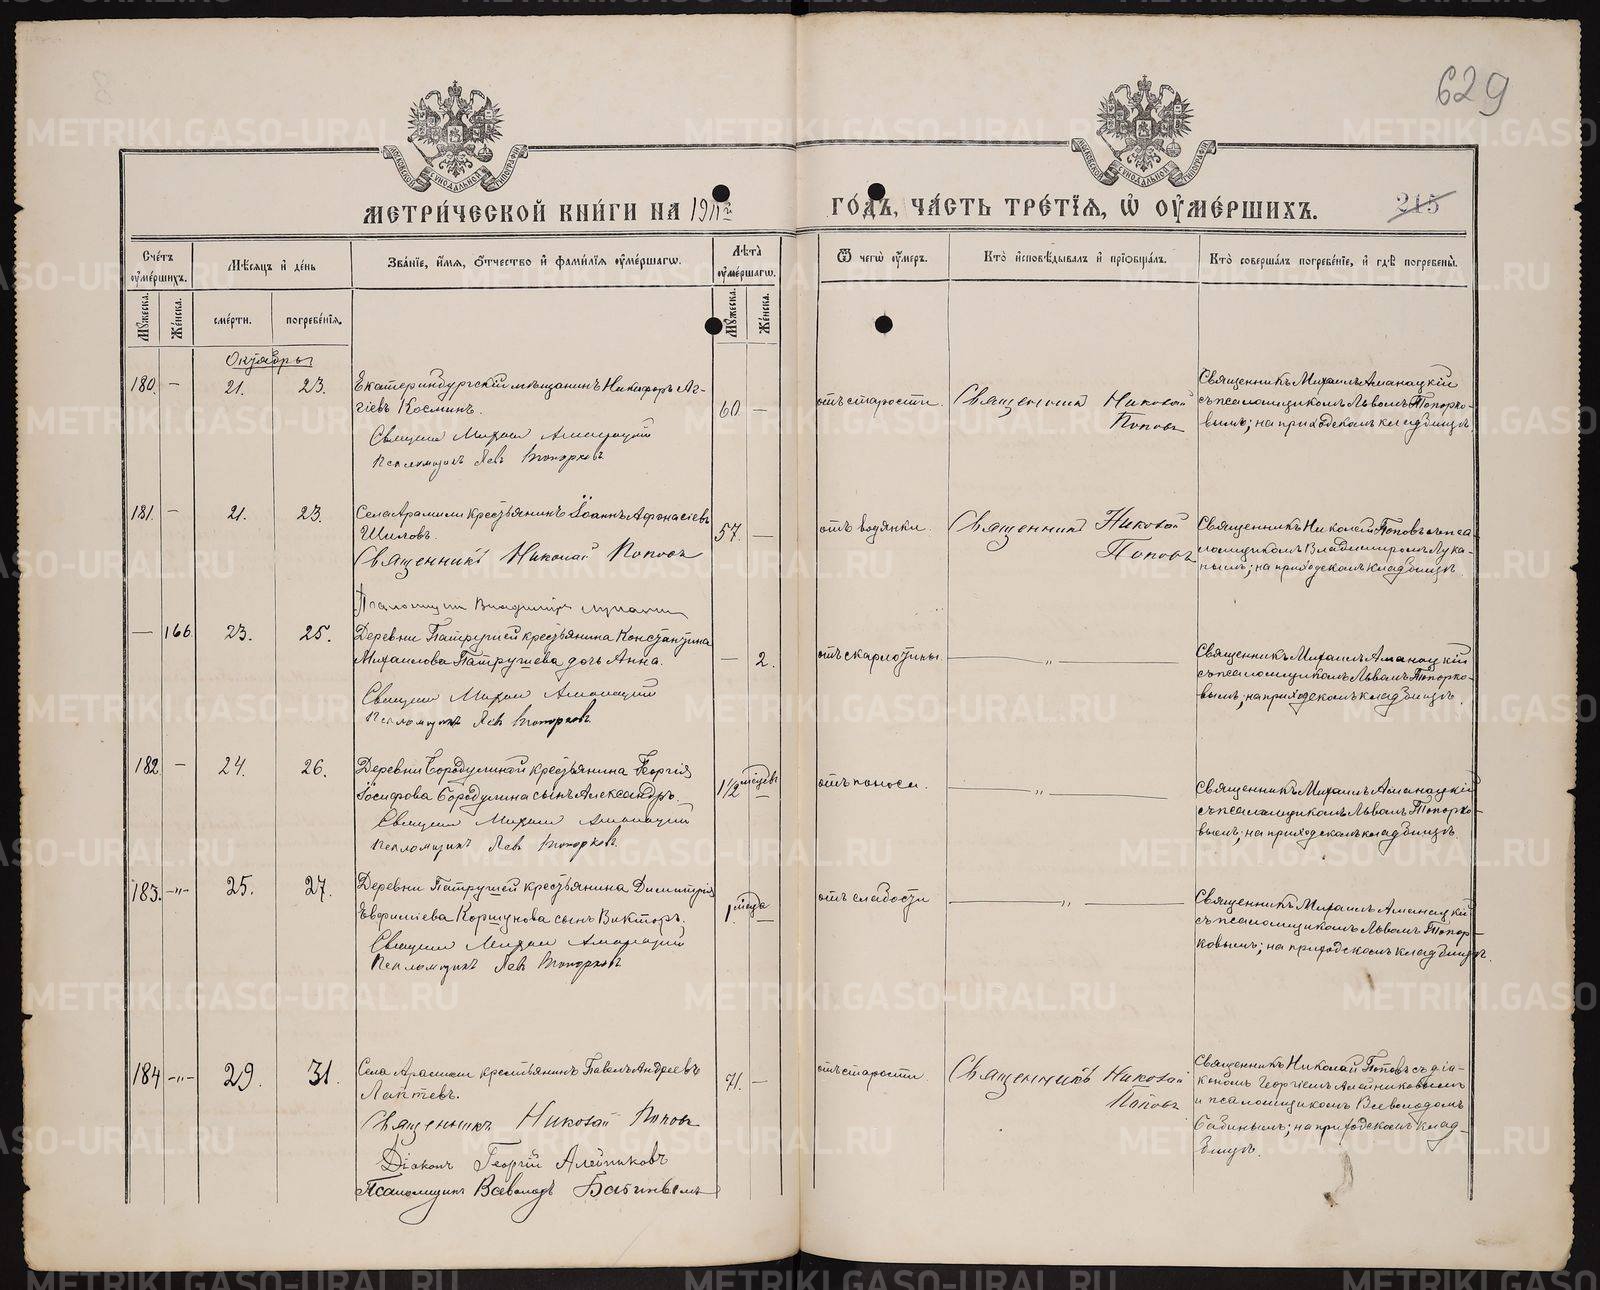 629
МЕТРИ́ЧЕСКОЙ КНИ́ГИ НА 1911й
ГО́ДЪ, ЧА́СТЬ ТРЕ́ТЇѦ, Ѡ҆ ОУ҆МЕ́РШИХЪ.
215
Сче́тъ оу҆ме́ршихъ.
Мѣ́сѧцъ и҆ де́нь
Зва́нїе, и҆́мѧ, ѻ҆́тчество и҆ фами́лїѧ оу҆ме́ршагѡ.
Лѣ́та оу҆ме́ршагѡ.
Ѿ чегѡ̀ оу҆́меръ.
Кто̀ и҆сповѣ́дывалъ и҆ прїѡбща́лъ.
Кто̀ соверша́лъ погребе́нїе, и҆ гдѣ̀ погребены̀.
Мꙋ́жеска.
Же́нска.
сме́рти.
погребе́нїѧ.
Мꙋ́жеска.
Же́нска.
Октябрь
180. — 21. 23.
Екатеринбургскій мѣщанинъ Никифоръ Аг-
гіевъ Косминъ.
Священ Михаил Аманацкій
Псаломщикъ Левъ Топорковъ
60. —
отъ старости.
Священникъ Николай
Поповъ
Священникъ Михаилъ Аманацкій
съ псаломщикомъ Львомъ Топорко-
вымъ; на приходскомъ кладбищѣ.
181. — 21. 23.
Села Арамили крестьянинъ Іоаннъ Афанасіевъ
Шиловъ.
Священникъ Николай Поповъ
Псаломщик Владиміръ Лукан
57. —
отъ водянки.
Священникъ Николай
Поповъ
Священникъ Николай Поповъ съ пса-
ломщикомъ Владиміромъ Лука-
нымъ; на приходскомъ кладбищѣ.
— 166. 23. 25.
Деревни Патрушей крестьянина Константина
Михаилова Патрушева дочь Анна.
Священ Михаил Аманацкій
Псаломщикъ Левъ Топорковъ
— 2.
отъ скарлотины.
— „ —
Священникъ Михаилъ Аманацкій
съ псаломщикомъ Львомъ Топорко-
вымъ; на приходскомъ кладбищѣ.
182 — 24. 26.
Деревни Бородулиной крестьянина Георгія
Іосифова Бородулина сынъ Александръ.
Священ Михаил Аманацкій
Псаломщикъ Левъ Топорковъ
1½ місцевъ —
отъ поноса.
— „ —
Священникъ Михаилъ Аманацкій
съ псаломщикомъ Львомъ Топорко-
вымъ; на приходскомъ кладбищѣ.
183. —„— 25. 27.
Деревни Патрушей крестьянина Димитрія
Евфиміева Коршунова сынъ Викторъ.
Священ Михаил Аманацкій
Псаломщикъ Левъ Топорковъ
1 місца —
отъ слабости
— „ —
Священникъ Михаилъ Аманацкій
съ псаломщикомъ Львомъ Топор-
ковымъ; на приходскомъ кладбищѣ.
184 —„— 29. 31.
Села Арамили крестьянинъ Павелъ Андреевъ
Лаптевъ.
Священникъ Николай Поповъ
Діаконъ Георгій Алейниковъ
Псаломщик Всеволодъ Бабинвымъ
71. —
отъ старости.
Священникъ Николай
Поповъ
Священникъ Николай Поповъ съ діа-
кономъ Георгіемъ Алейниковымъ
и псаломщикомъ Всеволодомъ
Бабинымъ; на приходскомъ клад-
бищѣ.
METRIKI.GASO-URAL.RU